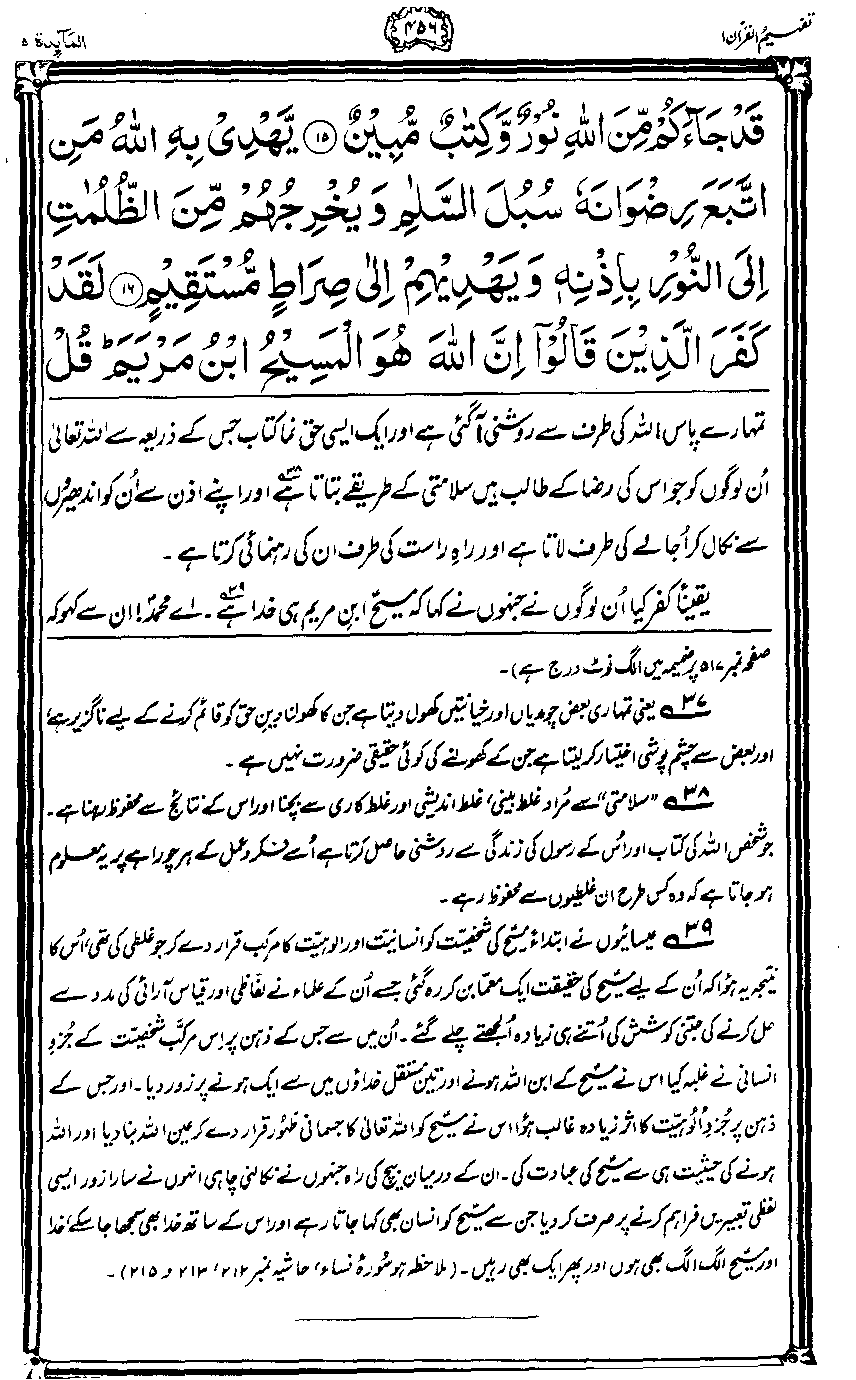 تفہیم القرآن ۱
۴۵۶
المآیدۃ ۵
قَدْ جَآءَكُمْ مِّنَ اللّٰهِ نُوْرٌ وَّكِتٰبٌ مُّبِيْنٌ ۝۱۵ يَّهْدِیْ بِهِ اللّٰهُ مَنِ
اتَّبَعَ رِضْوَانَهٗ سُبُلَ السَّلٰمِ وَيُخْرِجُهُمْ مِّنَ الظُّلُمٰتِ
اِلَى النُّوْرِ بِاِذْنِهٖ وَيَهْدِيْهِمْ اِلٰى صِرَاطٍ مُّسْتَقِيْمٍ ۝۱۶ لَقَدْ
كَفَرَ الَّذِيْنَ قَالُوْٓا اِنَّ اللّٰهَ هُوَ الْمَسِيْحُ ابْنُ مَرْيَمَ ؕ قُلْ
تمہارے پاس اللہ کی طرف سے روشنی آگئی ہے اور ایک ایسی حق نما کتاب جس کے ذریعہ سے اللہ تعالیٰ
اُن لوگوں کو جو اس کی رضا کے طالب ہیں سلامتی کے طریقے بتاتا ہے۳۸ اور اپنے اذن سے اُن کو اندھیروں
سے نکال کر اُجالے کی طرف لاتا ہے اور راہِ راست کی طرف ان کی رہنمائی کرتا ہے۔
یقیناً کفر کیا اُن لوگوں نے جنہوں نے کہا کہ مسیح ابنِ مریم ہی خدا ہے۳۹۔ اے محمدؐ! ان سے کہو کہ
صفحہ نمبر ۵۱۷ پر ضمیمہ میں الگ نوٹ درج ہے)۔
۳۷ یعنی تمہاری بعض چوریاں اور خیانتیں کھول دیتا ہے جن کا کھولنا دینِ حق کو قائم کرنے کے لیے ناگزیر ہے،
اور بعض سے چشم پوشی اختیار کر لیتا ہے جن کے کھولنے کی کوئی حقیقی ضرورت نہیں ہے۔
۳۸ ”سلامتی“ سے مُراد غلط بینی، غلط اندیشی اور غلط کاری سے بچنا اور اس کے نتائج سے محفوظ رہنا ہے۔
جو شخص اللہ کی کتاب اور اُس کے رسول کی زندگی سے روشنی حاصل کرتا ہے اُسے فکر و عمل کے ہر چوراہے پر یہ معلوم
ہو جاتا ہے کہ وہ کس طرح ان غلطیوں سے محفوظ رہے۔
۳۹ عیسائیوں نے ابتداءً مسیح کی شخصیت کو انسانیت اور الوہیت کا مرکب قرار دے کر جو غلطی کی تھی، اُس کا
نتیجہ یہ ہوا کہ اُن کے لیے مسیح کی حقیقت ایک معما بن کر رہ گئی جسے اُن کے علماء نے لفّاظی اور قیاس آرائی کی مدد سے
حل کرنے کی جتنی کوشش کی اُتنے ہی زیادہ اُلجھتے چلے گئے۔ اُن میں سے جس کے ذہن پر اِس مرکّب شخصیّت کے جُزوِ
انسانی نے غلبہ کیا اس نے مسیح کے ابن اللہ ہونے اور تین مستقل خداؤں میں سے ایک ہونے پر زور دیا۔ اور جس کے
ذہن پر جُزوِ اُلوہیّت کا اثر زیادہ غالب ہوا اس نے مسیح کو اللہ تعالیٰ کا جسمانی ظہُور قرار دے کر عین اللہ بنا دیا اور اللہ
ہونے کی حیثیت ہی سے مسیح کی عبادت کی۔ ان کے درمیان بیچ کی راہ جنہوں نے نکالنی چاہی انہوں نے سارا زور ایسی
لفظی تعبیریں فراہم کرنے پر صرف کر دیا جن سے مسیح کو انسان بھی کہا جاتا رہے اور اس کے ساتھ خدا بھی سمجھا جا سکے، خدا
اور مسیح الگ الگ بھی ہوں اور پھر ایک بھی رہیں۔ (ملاحظہ ہو سُورۂ نساء، حاشیہ نمبر ۲۱۲، ۲۱۳ و ۲۱۵)۔